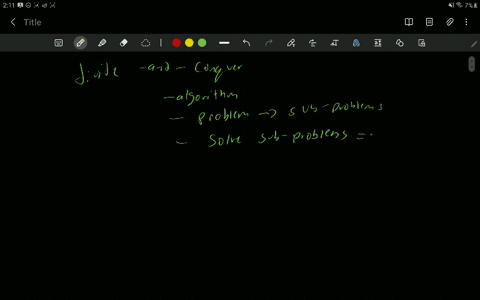 2:11
7%
Title
divide -and- Conquer
-algorithm
- problem -> sub-problems
- solve sub-problems =